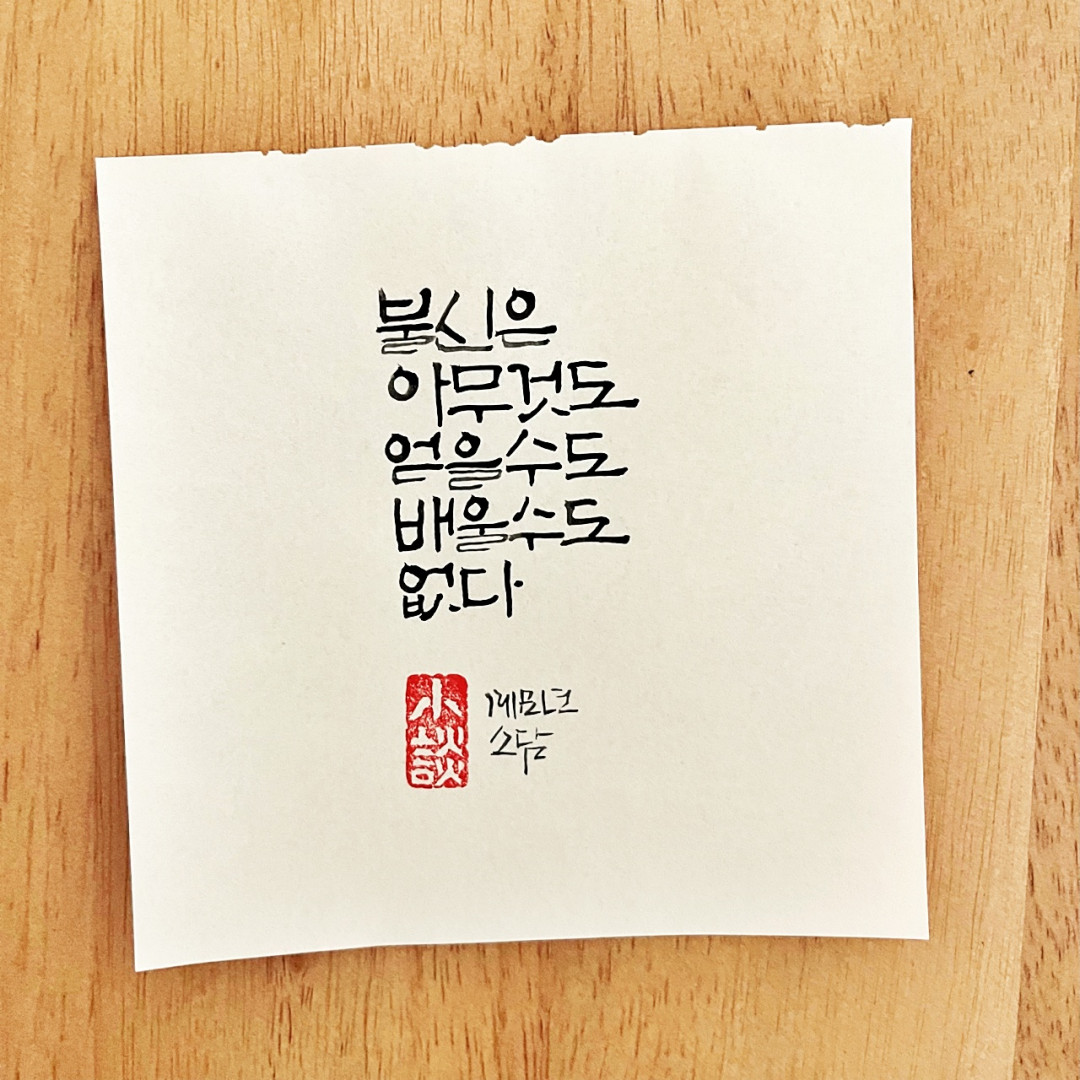 불신은
아무것도
얻을수도
배울수도
없다
小談
계묘년
소담